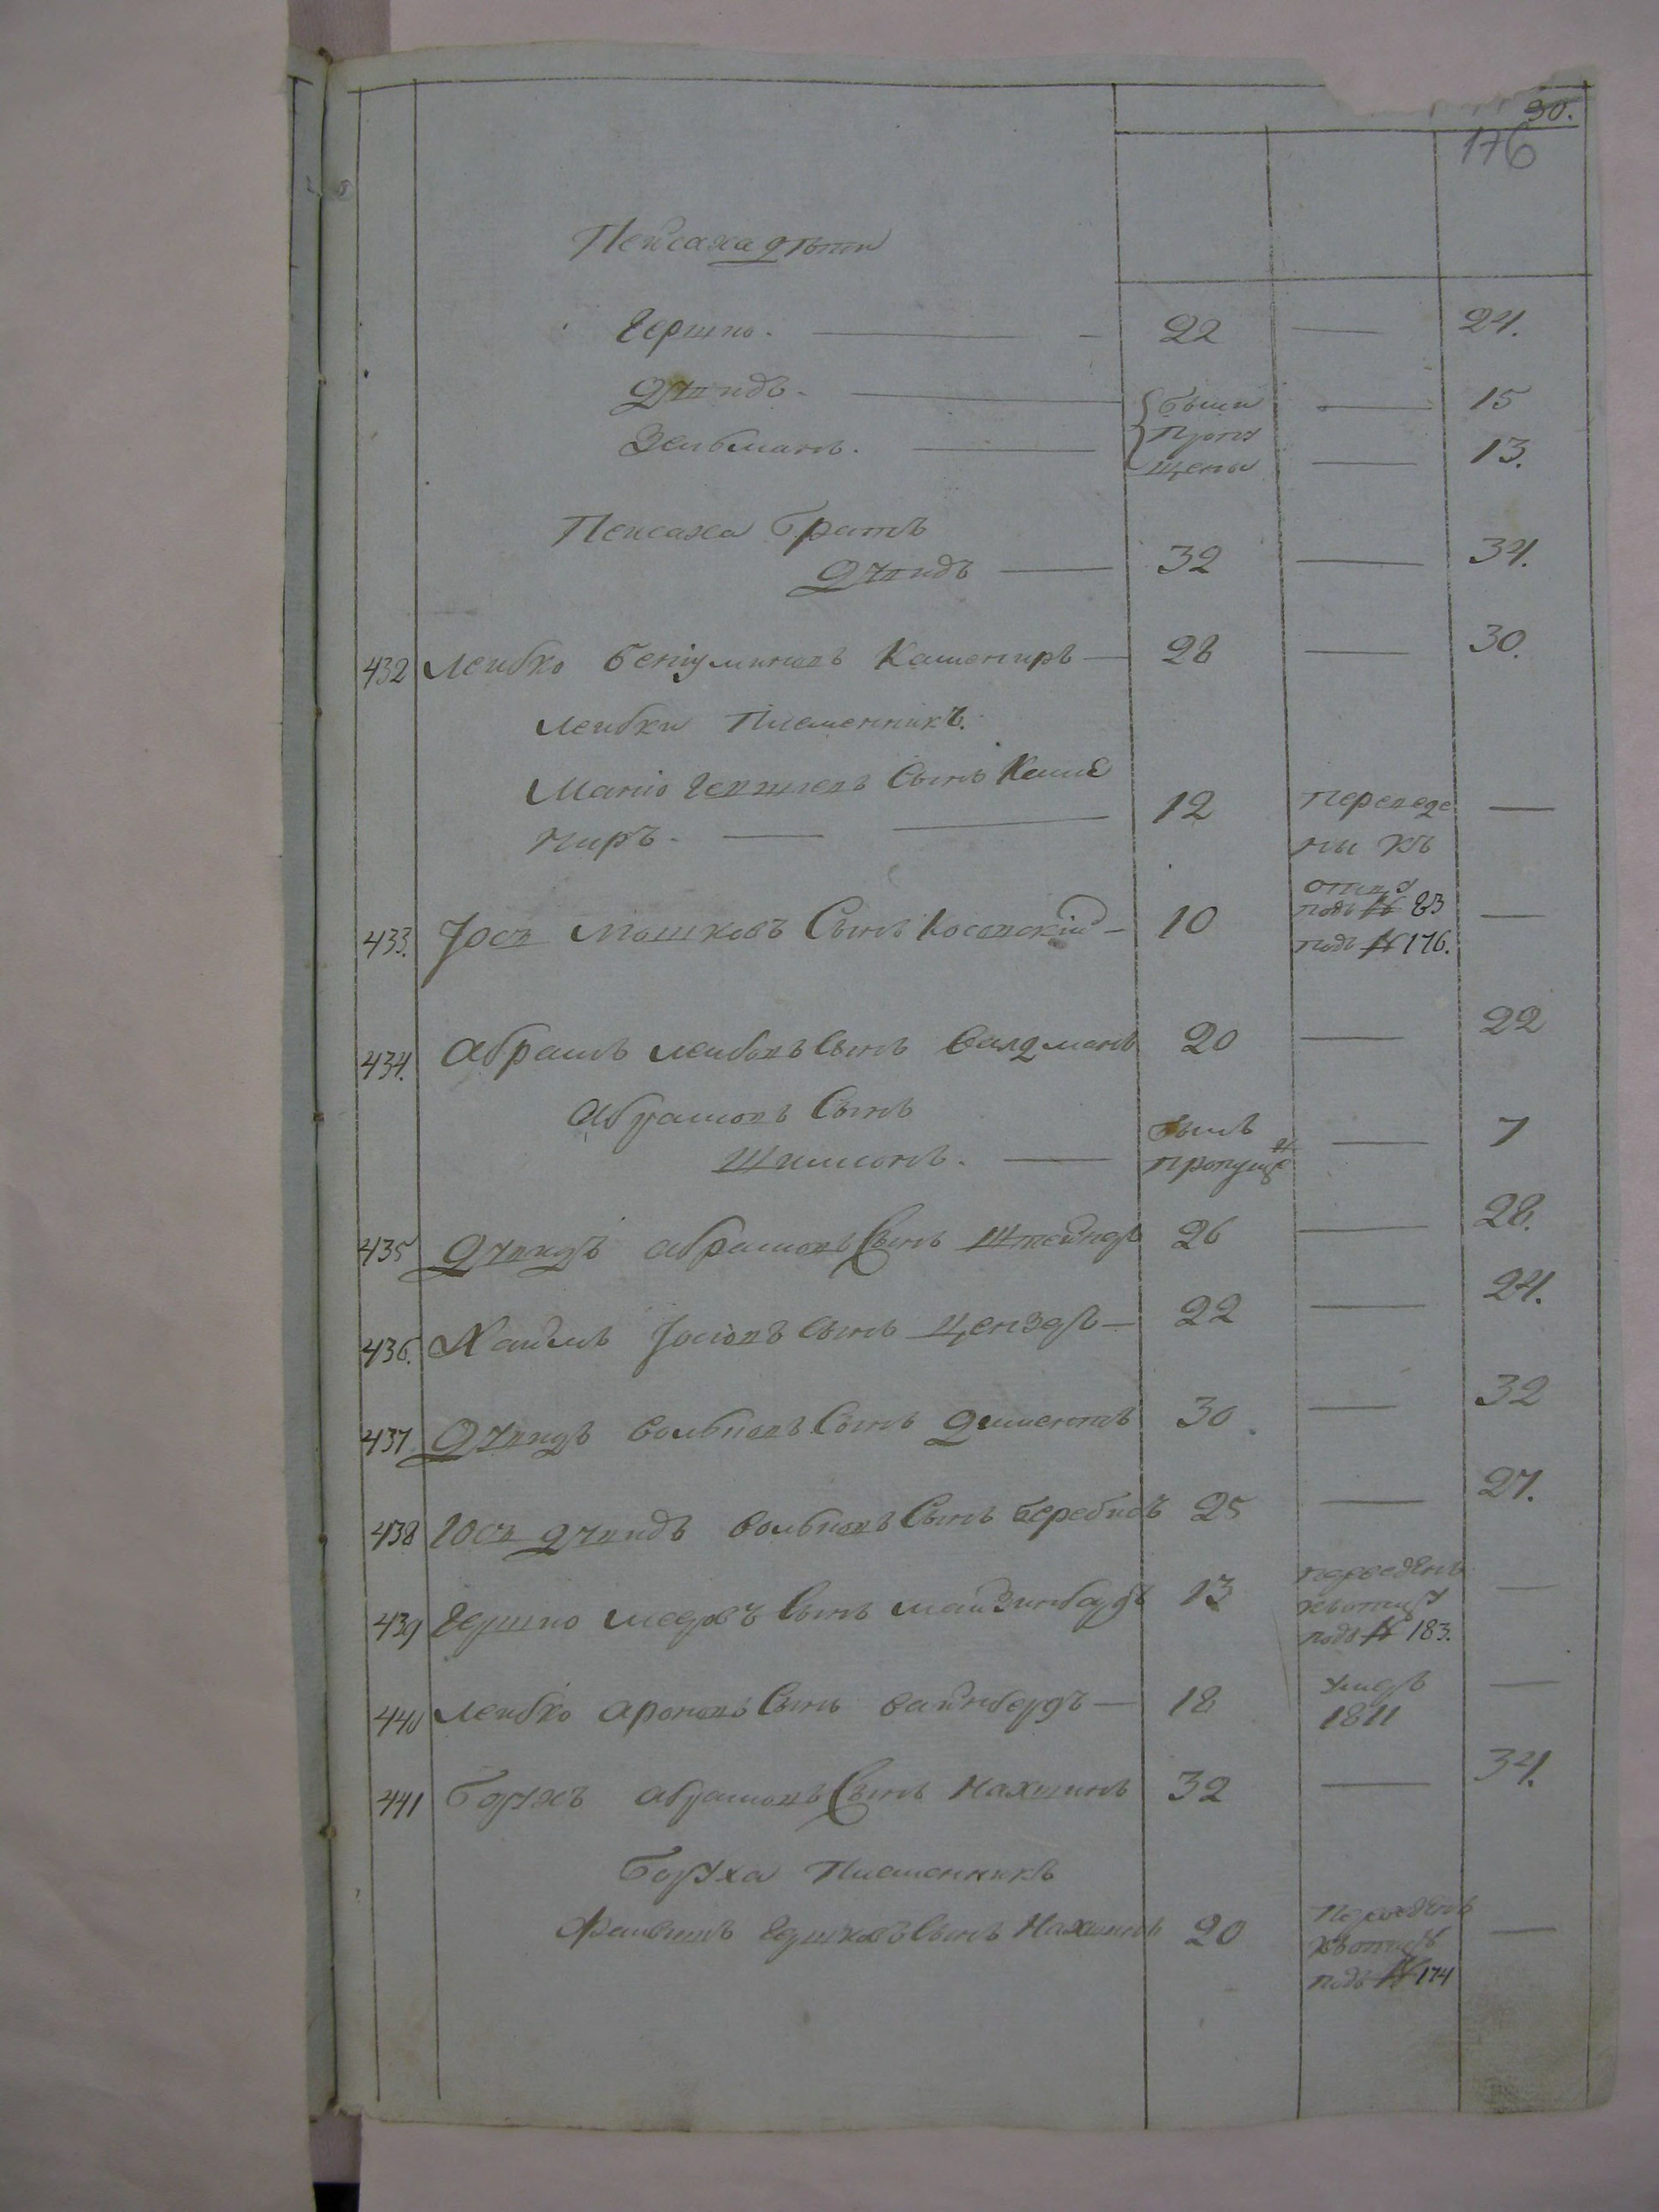 30.
176
Пейсаха дѣти
Гершко. 22 — 24.
Дувидъ. { были — 15
пропу
Зельманъ. щены — 13.
Пейсаха братъ
Дувидъ — 32 — 34.
432 Лейбко Беніуминовъ Кашениръ — 28 — 30.
Лейбки племенникъ.
Манio Гершковъ сынъ Каше
ниръ. — 12 переведе —
ны къ
отцу
подъ № 83
433. Іосъ Мошковъ сынъ Косовскій — 10 подъ № 176. —
434. Абрамъ Лейбовъ сынъ Валдманъ 20 — 22
Абрамовъ сынъ
Шимонъ. — былъ пропущен — 7
435 Дувидъ Абрамовъ сынъ Штейнеръ 26 — 28.
436. Хаимъ Іосіовъ сынъ Цензеръ — 22 — 24.
437 Дувидъ Вольковъ сынъ Диментъ 30 — 32
438 Іосъ Дувидъ Вольковъ сынъ 25 — 27.
439 Гершко Мееровъ сынъ 13 переведенъ —
къ отцу
подъ № 183.
440 Лейбко Ароновъ сынъ Вайнбергъ — 18 умеръ —
1811
441 Борухъ Абрамовъ сынъ Нахманъ 32 — 34.
Боруха племенникъ
Файвишъ Гершковъ сынъ Нахманъ 20 переведенъ —
къ отцу
подъ № 174